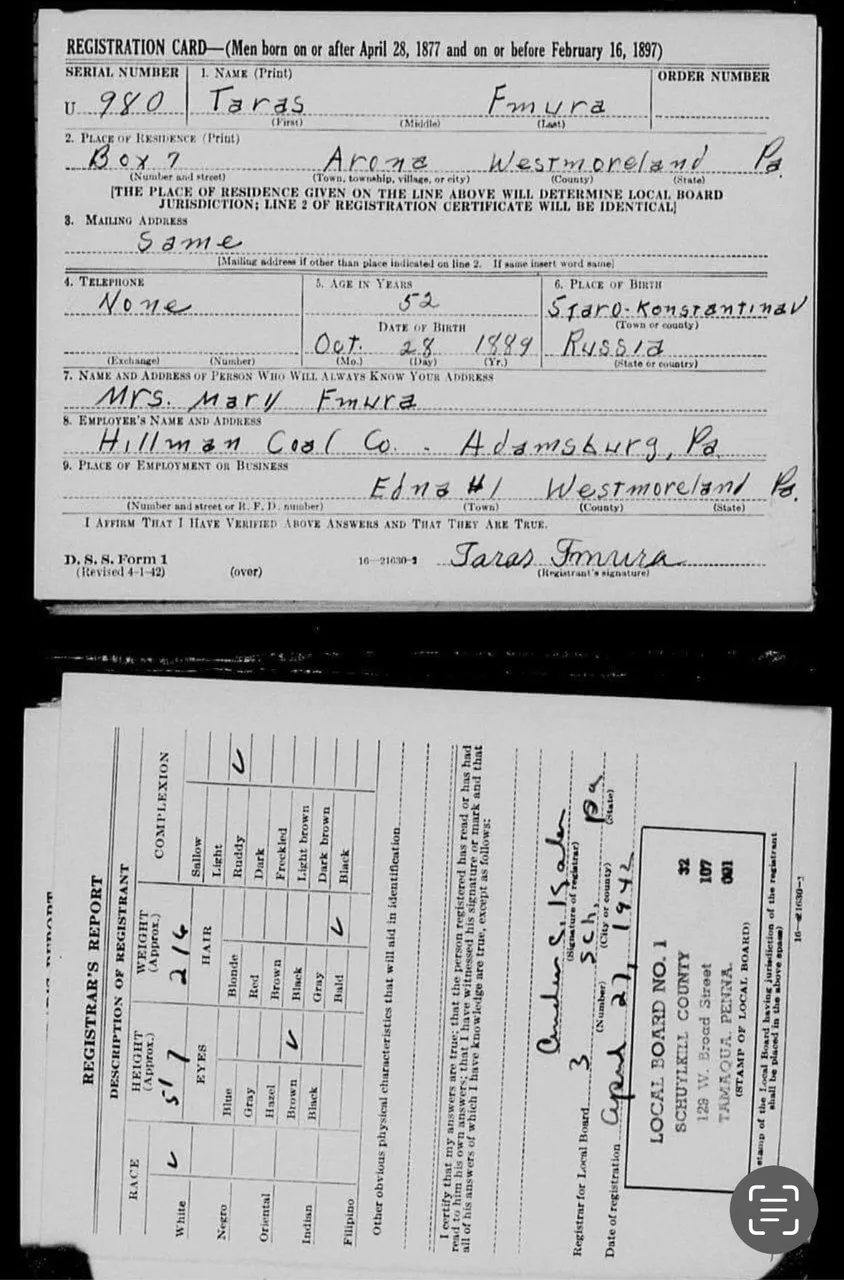 REGISTRATION CARD—(Men born on or after April 28, 1877 and on or before February 16, 1897)
SERIAL NUMBER 1. NAME (Print) ORDER NUMBER
U 980 Taras Fmura
(First) (Middle) (Last)
2. PLACE OF RESIDENCE (Print)
Box 7 Arona Westmoreland Pa.
(Number and street) (Town, township, village, or city) (County) (State)
[THE PLACE OF RESIDENCE GIVEN ON THE LINE ABOVE WILL DETERMINE LOCAL BOARD
JURISDICTION; LINE 2 OF REGISTRATION CERTIFICATE WILL BE IDENTICAL]
3. MAILING ADDRESS
Same
[Mailing address if other than place indicated on line 2. If same insert word same]
4. TELEPHONE 5. AGE IN YEARS 6. PLACE OF BIRTH
None 52 Staro-Konstantinav
DATE OF BIRTH (Town or county)
Oct. 28 1889 Russia
(Exchange) (Number) (Mo.) (Day) (Yr.) (State or country)
7. NAME AND ADDRESS OF PERSON WHO WILL ALWAYS KNOW YOUR ADDRESS
Mrs. Mary Fmura
8. EMPLOYER'S NAME AND ADDRESS
Hillman Coal Co. - Adamsburg, Pa.
9. PLACE OF EMPLOYMENT OR BUSINESS
Edna #1 Westmoreland Pa.
(Number and street or R. F. D. number) (Town) (County) (State)
I AFFIRM THAT I HAVE VERIFIED ABOVE ANSWERS AND THAT THEY ARE TRUE.
D. S. S. Form 1
(Revised 4-1-42) (over) 16—21630-2 Taras Fmura
(Registrant's signature)
REGISTRAR'S REPORT
DESCRIPTION OF REGISTRANT
RACE HEIGHT (Approx.) WEIGHT (Approx.) COMPLEXION
White 5' 7 216 Sallow
EYES HAIR Light
Negro Blue Blonde Ruddy
Gray Red Dark
Oriental Hazel Brown Freckled
Brown Black Light brown
Indian Black Gray Dark brown
Filipino Bald Black
Other obvious physical characteristics that will aid in identification
I certify that my answers are true; that the person registered has read or has had
read to him his own answers; that I have witnessed his signature or mark and that
all of his answers of which I have knowledge are true, except as follows:
(Signature of registrar)
Registrar for Local Board 3 Sch. Pa
(Number) (City or county) (State)
Date of registration April 27, 1942
LOCAL BOARD NO. 1 32
SCHUYLKILL COUNTY 107
129 W. Broad Street 001
TAMAQUA, PENNA.
(STAMP OF LOCAL BOARD)
stamp of the Local Board having jurisdiction of the registrant
shall be placed in the above space)
16—21630-2